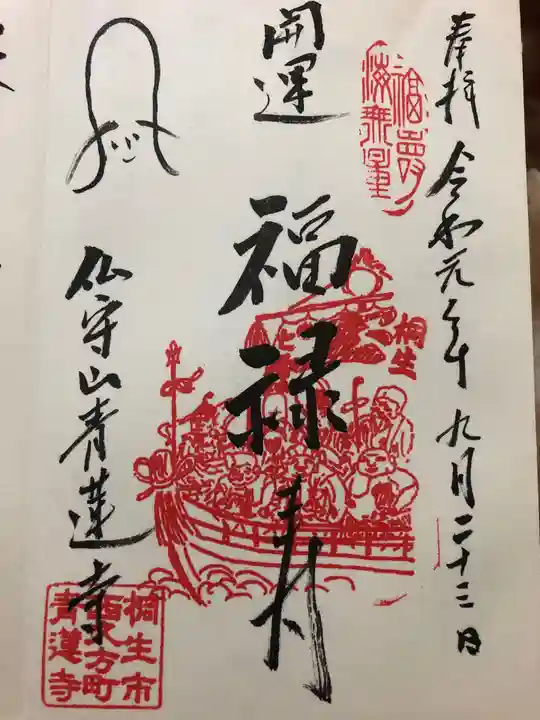 奉拝 令和元年 九月二十三日
福壽海無量
開運
福禄寿
桐生
仏守山青蓮寺
桐生市
西久方町
青蓮寺